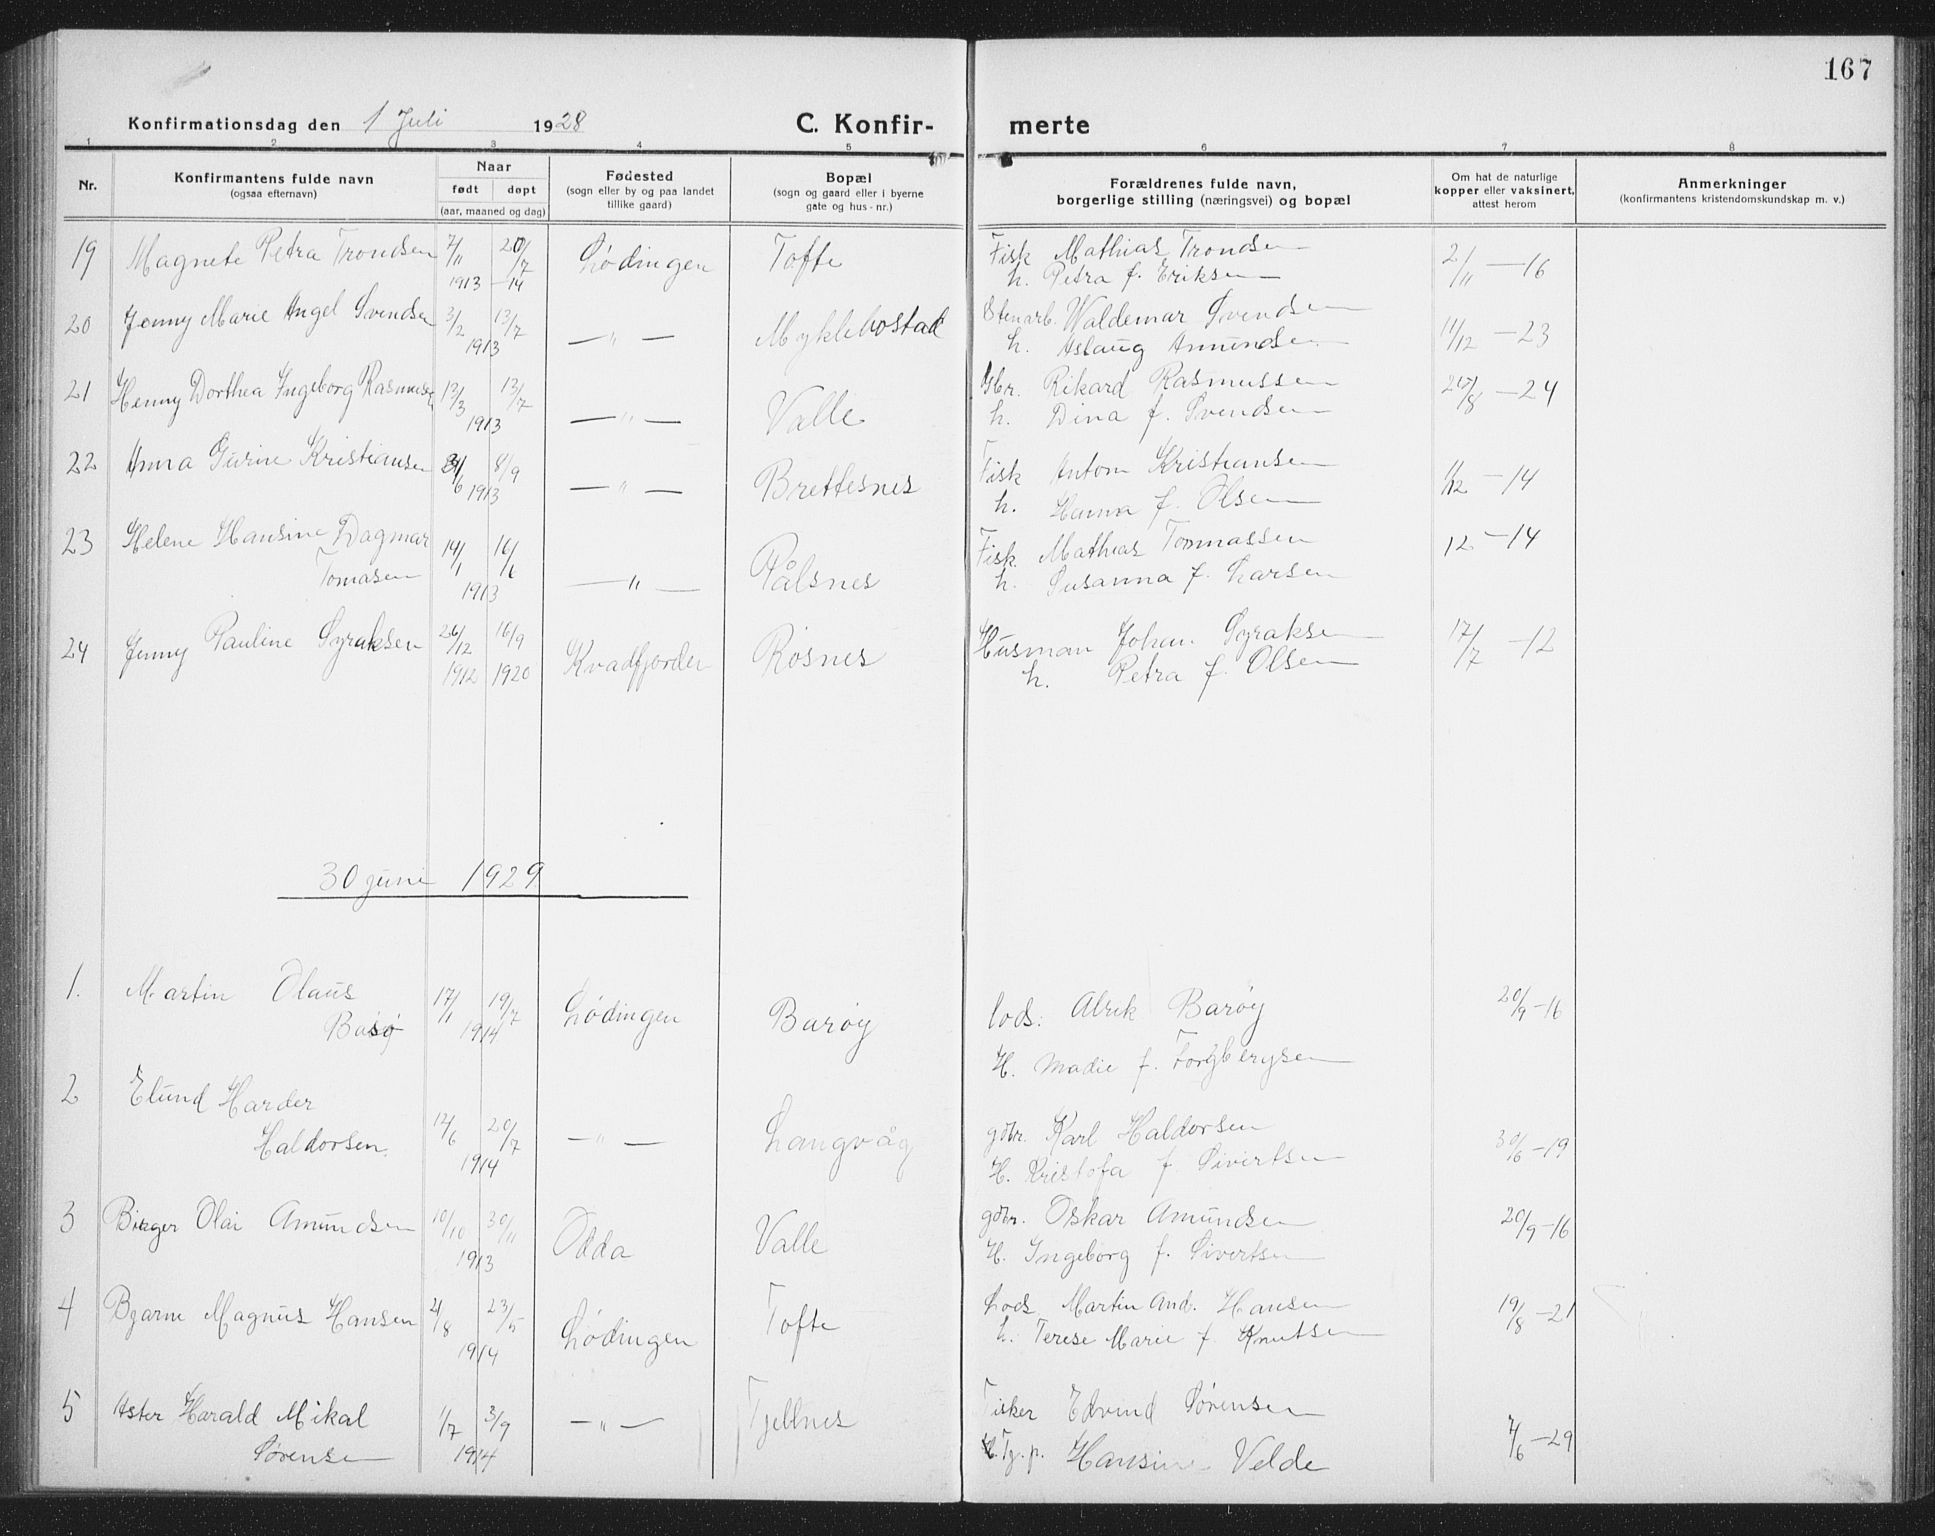 167
Konfirmationsdag den 1 Juli 1928 C. Konfir- merte
1 2 3 4 5 6 7 8
Nr. Konfirmantens fulde navn (ogsaa efternavn) Naar født døpt (aar, maaned og dag) Fødested (sogn eller by og paa landet tillike gaard) Bopæl (sogn og gaard eller i byerne gate og hus-nr.) Forældrenes fulde navn, borgerlige stilling (næringsvei) og bopæl Om hat de naturlige kopper eller vaksinert, attest herom Anmerkninger (konfirmantens kristendomskundskap m. v.)
19 Magnete Petra Trondsen 7/11 1913 20/7 -14 Lødingen Tofte Fisk Mathias Trondsen 2/11 - 16
h. Petra f. Eriksen
20 Jenny Marie Angel Svendsen 3/2 13/7 1913 — " — Myklebostad Stenarb. Waldemar Svendsen 11/12 - 23
h. Aslaug Amundsen
21 Henny Dorthea Ingeborg Rasmussen 13/3 13/7 1913 — " — Valle Gbr. Rikard Rasmussen /8 - 24
h. Dina f. Svendsen
22 Anna Gurine Kristiansen /6 8/9 1913 — " — Brettesnes Fisk Anton Kristiansen /12 - 14
h. Hanna f. Olsen
23 Helene Hansine Dagmar 14/1 16/6 1913 — " — Pålsnes Fisk Mathias Tommassen 12 - 14
Tomasen h. Susanna f. Larsen
24 Jenny Pauline Syraksen 26/12 1912 16/9 1920 Kvadfjorden Rosnes Husman Johan Syraksen 17/7 - 12
h. Petra f. Olsen
30 juni 1929
1. Martin Olaus 17/1 19/7 1914 Lødingen Barøy lods: Alrik Barøy 20/9 - 16
H. Madie f.
2 Elund Harder 12/6 20/7 1914 — " — Langvåg gdbr. Karl Haldorsen 30/6 - 19
Haldorsen H. Kristofa f. Sivertsen
3 Birger Olai Amundsen 10/10 30/11 1913 Odda Valle gdbr. Oskar Amundsen 20/9 - 16
H. Ingeborg f. Sivertsen
4 Bjarne Magnus Hansen /8 23/5 1914 Lødingen Tofte Lods Martin And. Hansen 19/8 - 21
h. Terese Marie f. Knutsen
5 Aster Harald Mikal 1/7 3/9 1914 — " — Tjellnes Fisker Edvind Sørensen 7/6 - 29
Sørensen Hansine Velde